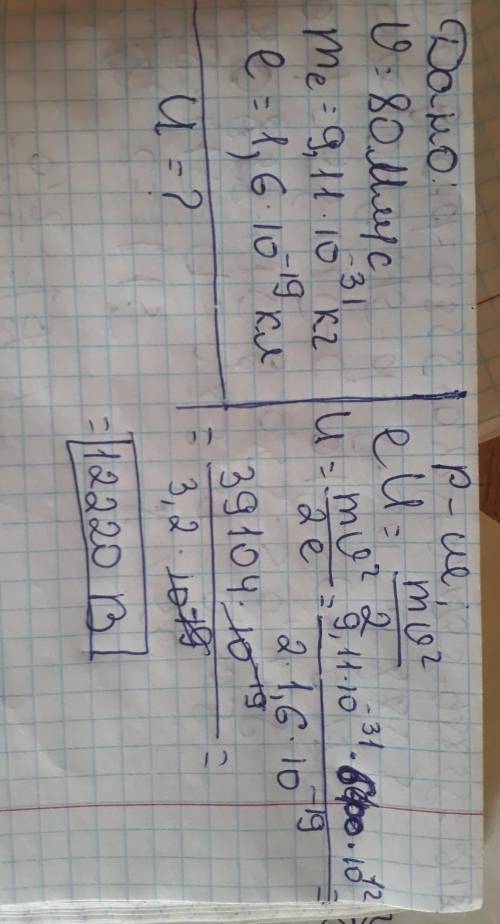 Дано:
υ = 80 Мм/с
mₑ = 9,11 · 10⁻³¹ кг
e = 1,6 · 10⁻¹⁹ кл
U = ?
Р-ие,
eU = mυ²/2
U = mυ²/2e = 9,11·10⁻³¹ · · 10¹²/2·1,6·10⁻¹⁹ =
= 39104 · 10⁻¹⁹/3,2 · 10⁻¹⁹ =
= 12220 В